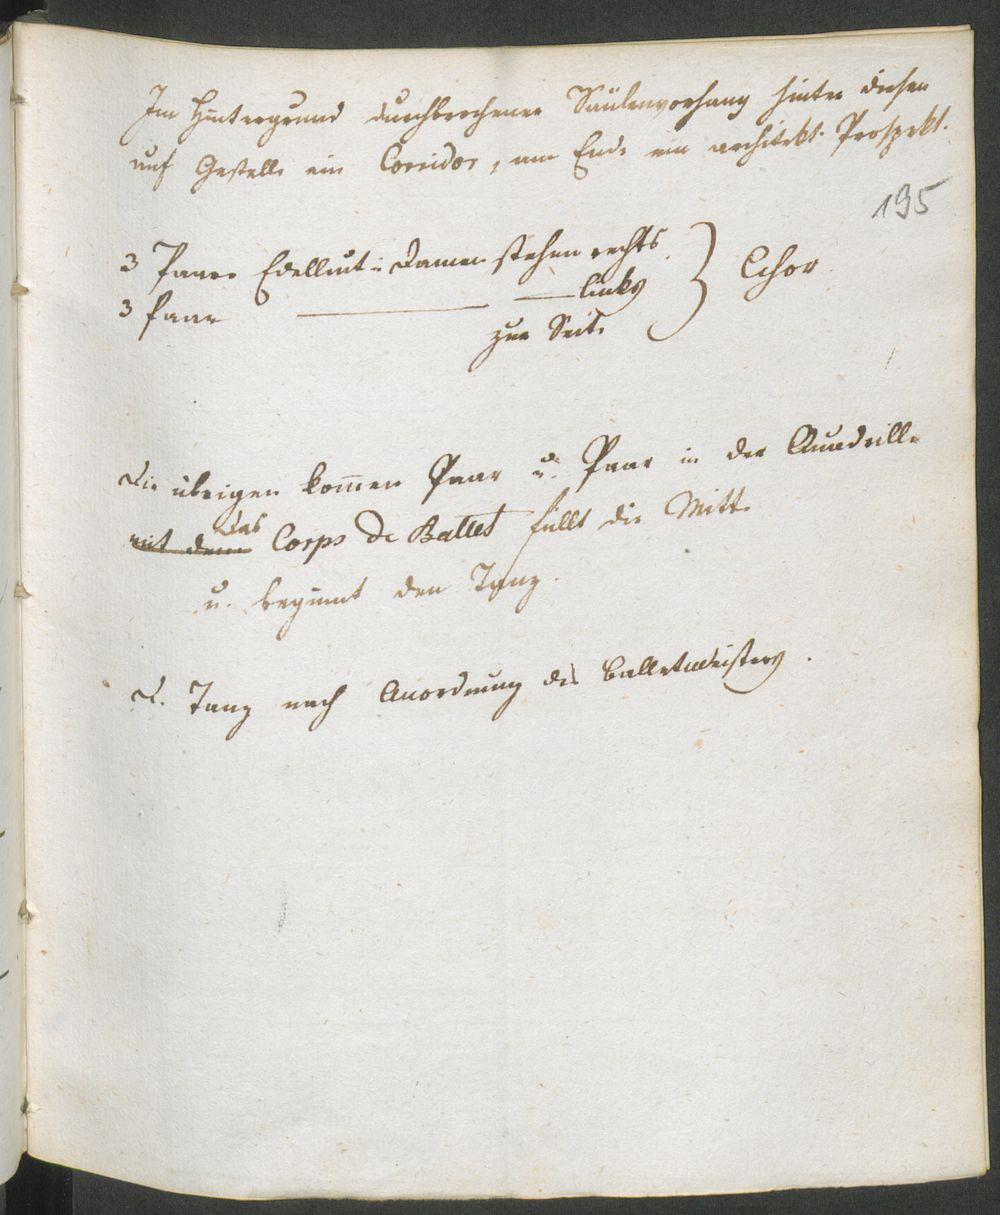 Im Hintergrund durchbrochener Säulenvorhang hinter diesen
auf Gestelle ein Corridor, am Ende ein architekt. Prospekt.
195
3 Paare Edelleut u Damen stehen rechts } Chor
3 Paar ——— — links
zur Seite
Die übrigen kom̄en Paar u. Paar in der Quadrille
das
mit dem Corps de Ballet füllt die Mitte
u. beginnt den Tanz.
D. Tanz nach Anordnung des Balletmeisters.